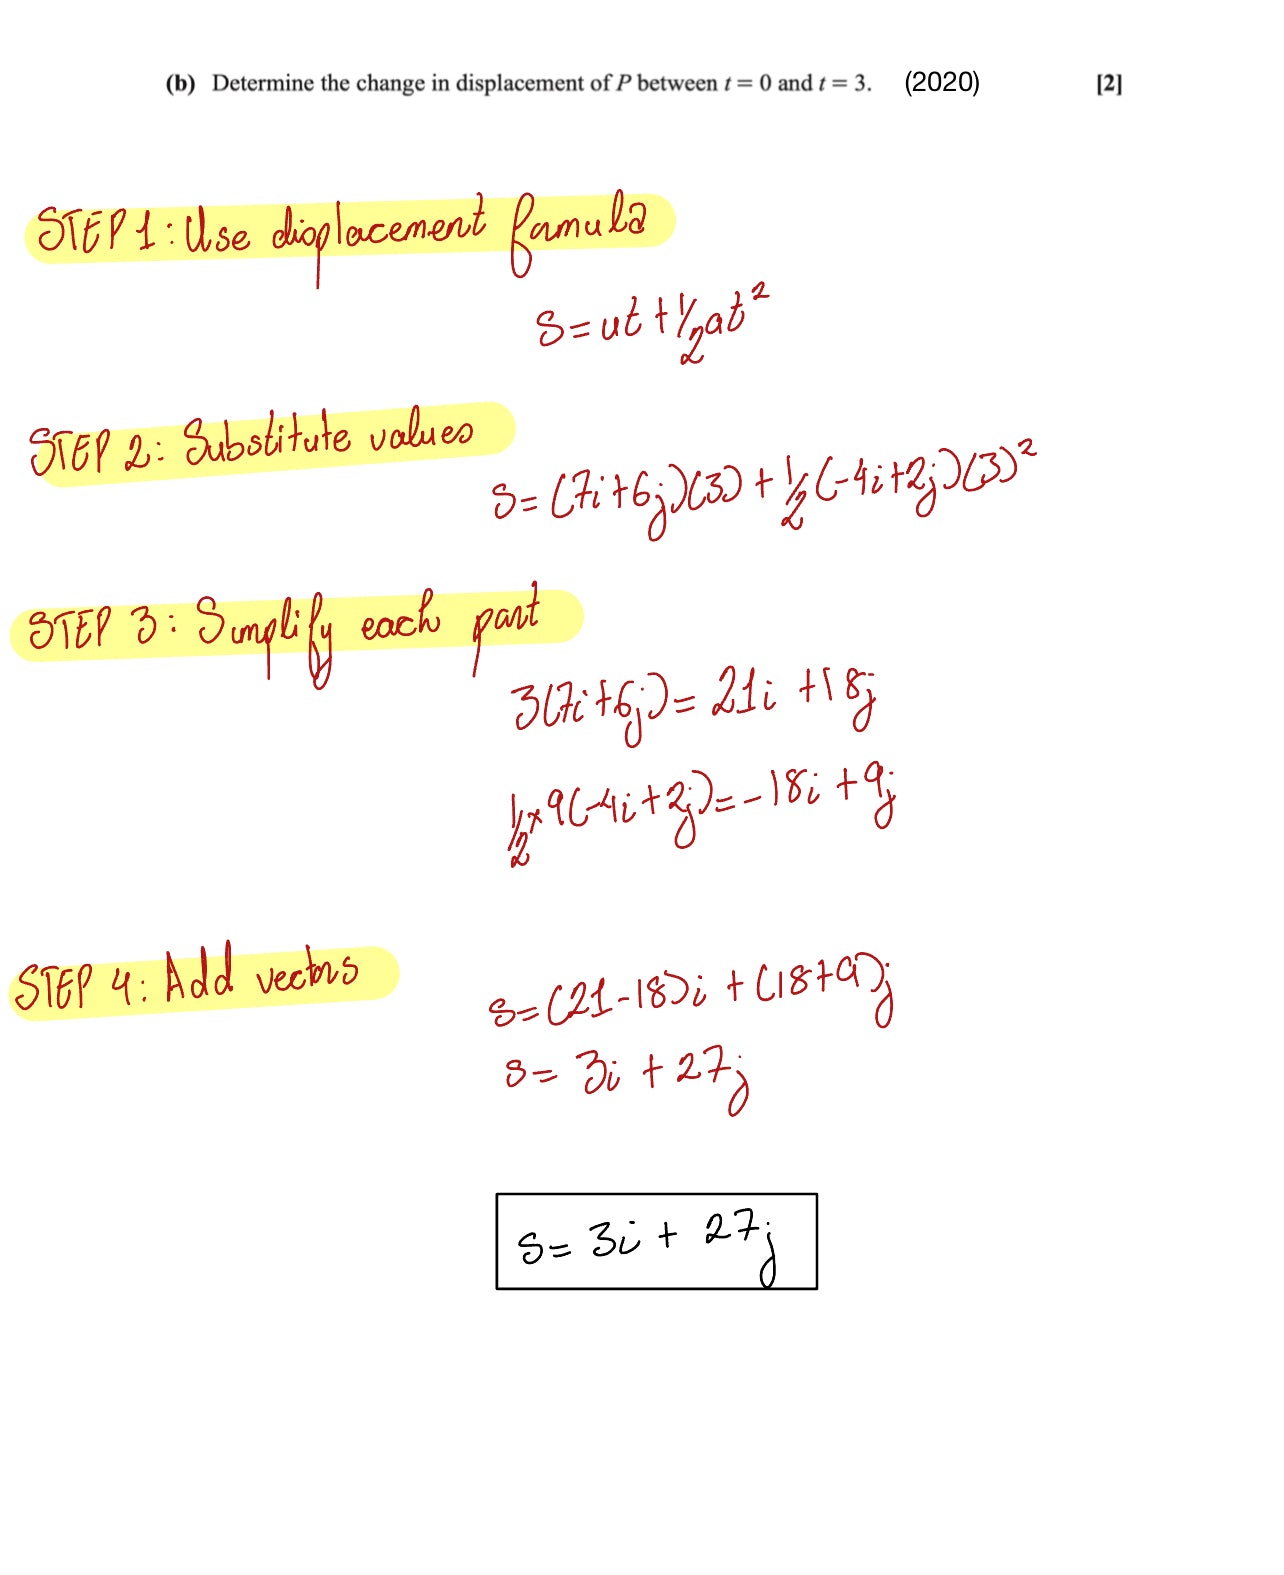 (b) Determine the change in displacement of P between t = 0 and t = 3. (2020) [2]
STEP 1: Use displacement formula
S = ut + ½at²
STEP 2: Substitute values
S = (7i + 6j)(3) + ½(-4i + 2j)(3)²
STEP 3: Simplify each part
3(7i + 6j) = 21i + 18j
½ × 9(-4i + 2j) = -18i + 9j
STEP 4: Add vectors
S = (21 - 18)i + (18 + 9)j
S = 3i + 27j
S = 3i + 27j